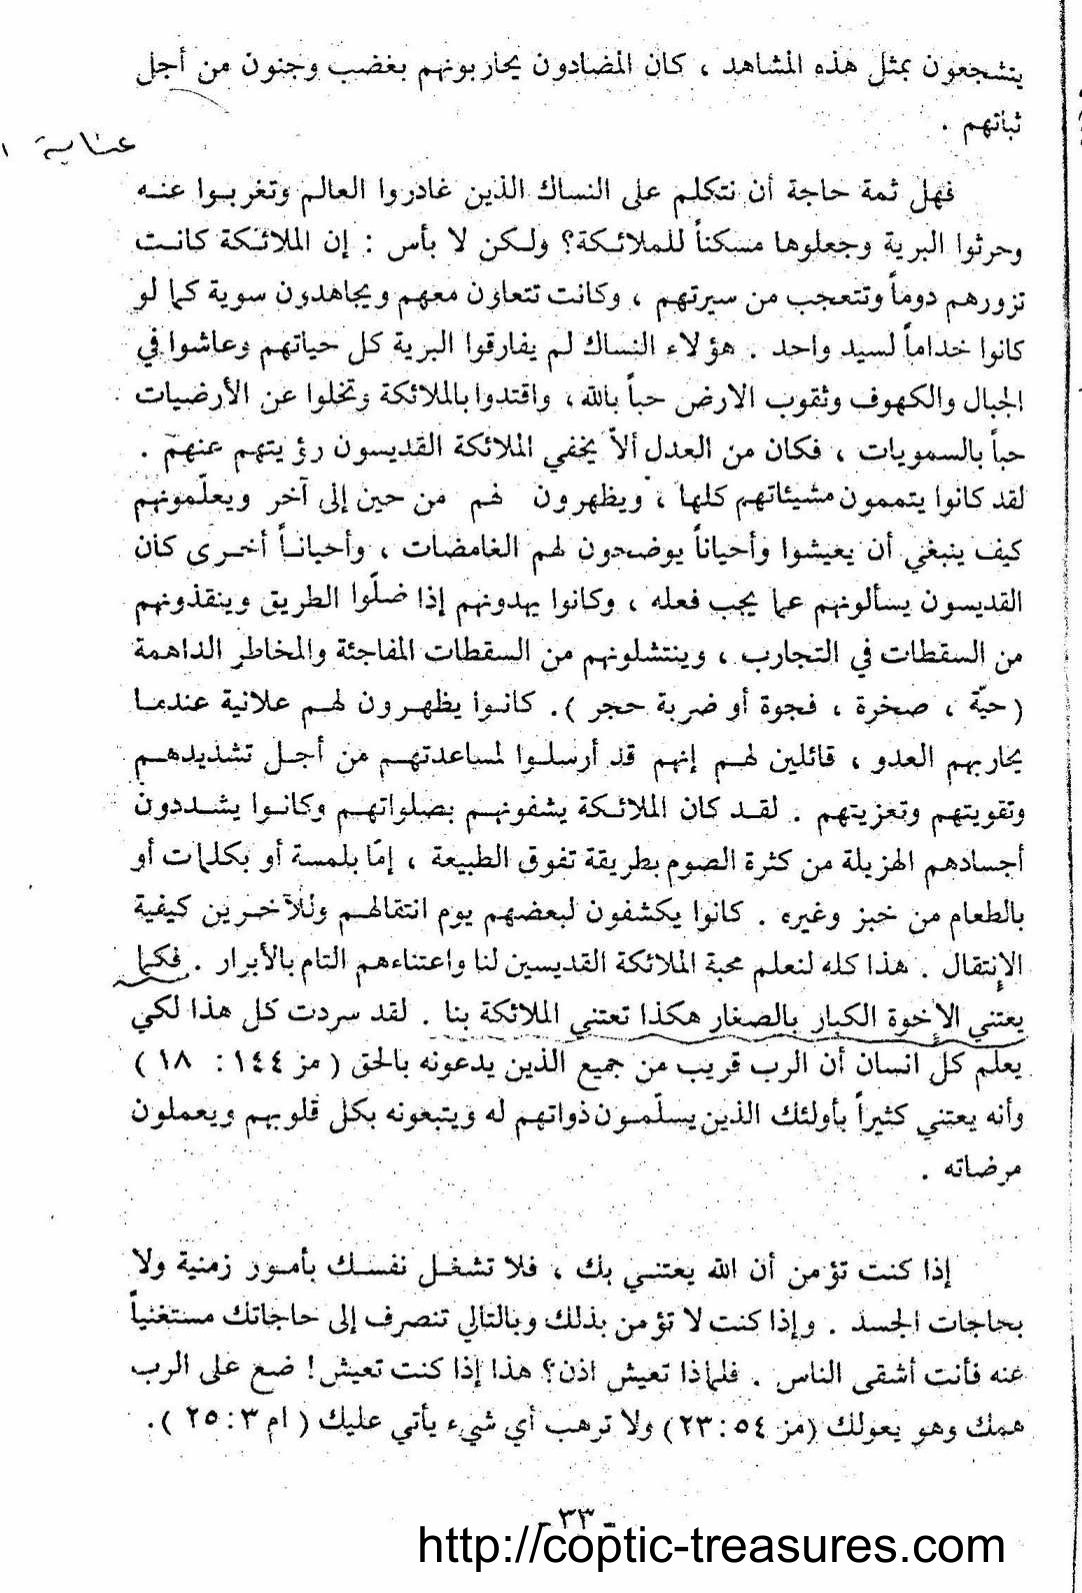 يتشجعون بمثل هذه المشاهد ، كان المضادون يحاربونهم بغضب وجنون من أجل
ثباتهم .
عناية
فهل ثمة حاجة أن نتكلم على النساك الذين غادروا العالم وتغربوا عنه
وحرثوا البرية وجعلوها مسكناً للملائكة؟ ولكن لا بأس : إن الملائكة كانت
تزورهم دوماً وتتعجب من سيرتهم ، وكانت تتعاون معهم ويجاهدون سوية كما لو
كانوا خداماً لسيد واحد . هؤلاء النساك لم يفارقوا البرية كل حياتهم وعاشوا في
الجبال والكهوف وثقوب الارض حباً بالله ، واقتدوا بالملائكة وتخلوا عن الأرضيات
حباً بالسمويات ، فكان من العدل ألاّ يخفي الملائكة القديسون رؤيتهم عنهم .
لقد كانوا يتممون مشيئاتهم كلها ، ويظهرون لهم من حين إلى آخر ويعلّمونهم
كيف ينبغي أن يعيشوا وأحياناً يوضحون لهم الغامضات ، وأحياناً أخرى كان
القديسون يسألونهم عما يجب فعله ، وكانوا يهدونهم إذا ضلّوا الطريق وينقذونهم
من السقطات في التجارب ، وينتشلونهم من السقطات المفاجئة والمخاطر الداهمة
( حيّة ، صخرة ، فجوة أو ضربة حجر ) . كانوا يظهرون لهم علانية عندما
يحاربهم العدو ، قائلين لهم إنهم قد أرسلوا لمساعدتهم من أجل تشديدهم
وتقويتهم وتعزيتهم . لقد كان الملائكة يشفونهم بصلواتهم وكانوا يشددون
أجسادهم الهزيلة من كثرة الصوم بطريقة تفوق الطبيعة ، إمّا بلمسة أو بكلمات أو
بالطعام من خبز وغيره . كانوا يكشفون لبعضهم يوم انتقالهم وللآخرين كيفية
الإنتقال . هذا كله لنعلم محبة الملائكة القديسين لنا واعتناءهم التام بالأبرار . فكما
يعتني الإخوة الكبار بالصغار هكذا تعتني الملائكة بنا . لقد سردت كل هذا لكي
يعلم كل انسان أن الرب قريب من جميع الذين يدعونه بالحق ( مز ١٤٤ : ١٨ )
وأنه يعتني كثيراً بأولئك الذين يسلّمون ذواتهم له ويتبعونه بكل قلوبهم ويعملون
مرضاته .
إذا كنت تؤمن أن الله يعتني بك ، فلا تشغل نفسك بأمور زمنية ولا
بحاجات الجسد . وإذا كنت لا تؤمن بذلك وبالتالي تنصرف إلى حاجاتك مستغنياً
عنه فأنت أشقى الناس . فلماذا تعيش اذن؟ هذا إذا كنت تعيش! ضع على الرب
همك وهو يعولك (مز ٥٤ : ٢٣) ولا ترهب أي شيء يأتي عليك ( ام ٣ : ٢٥ ) .
- ٣٣ -
http://coptic-treasures.com